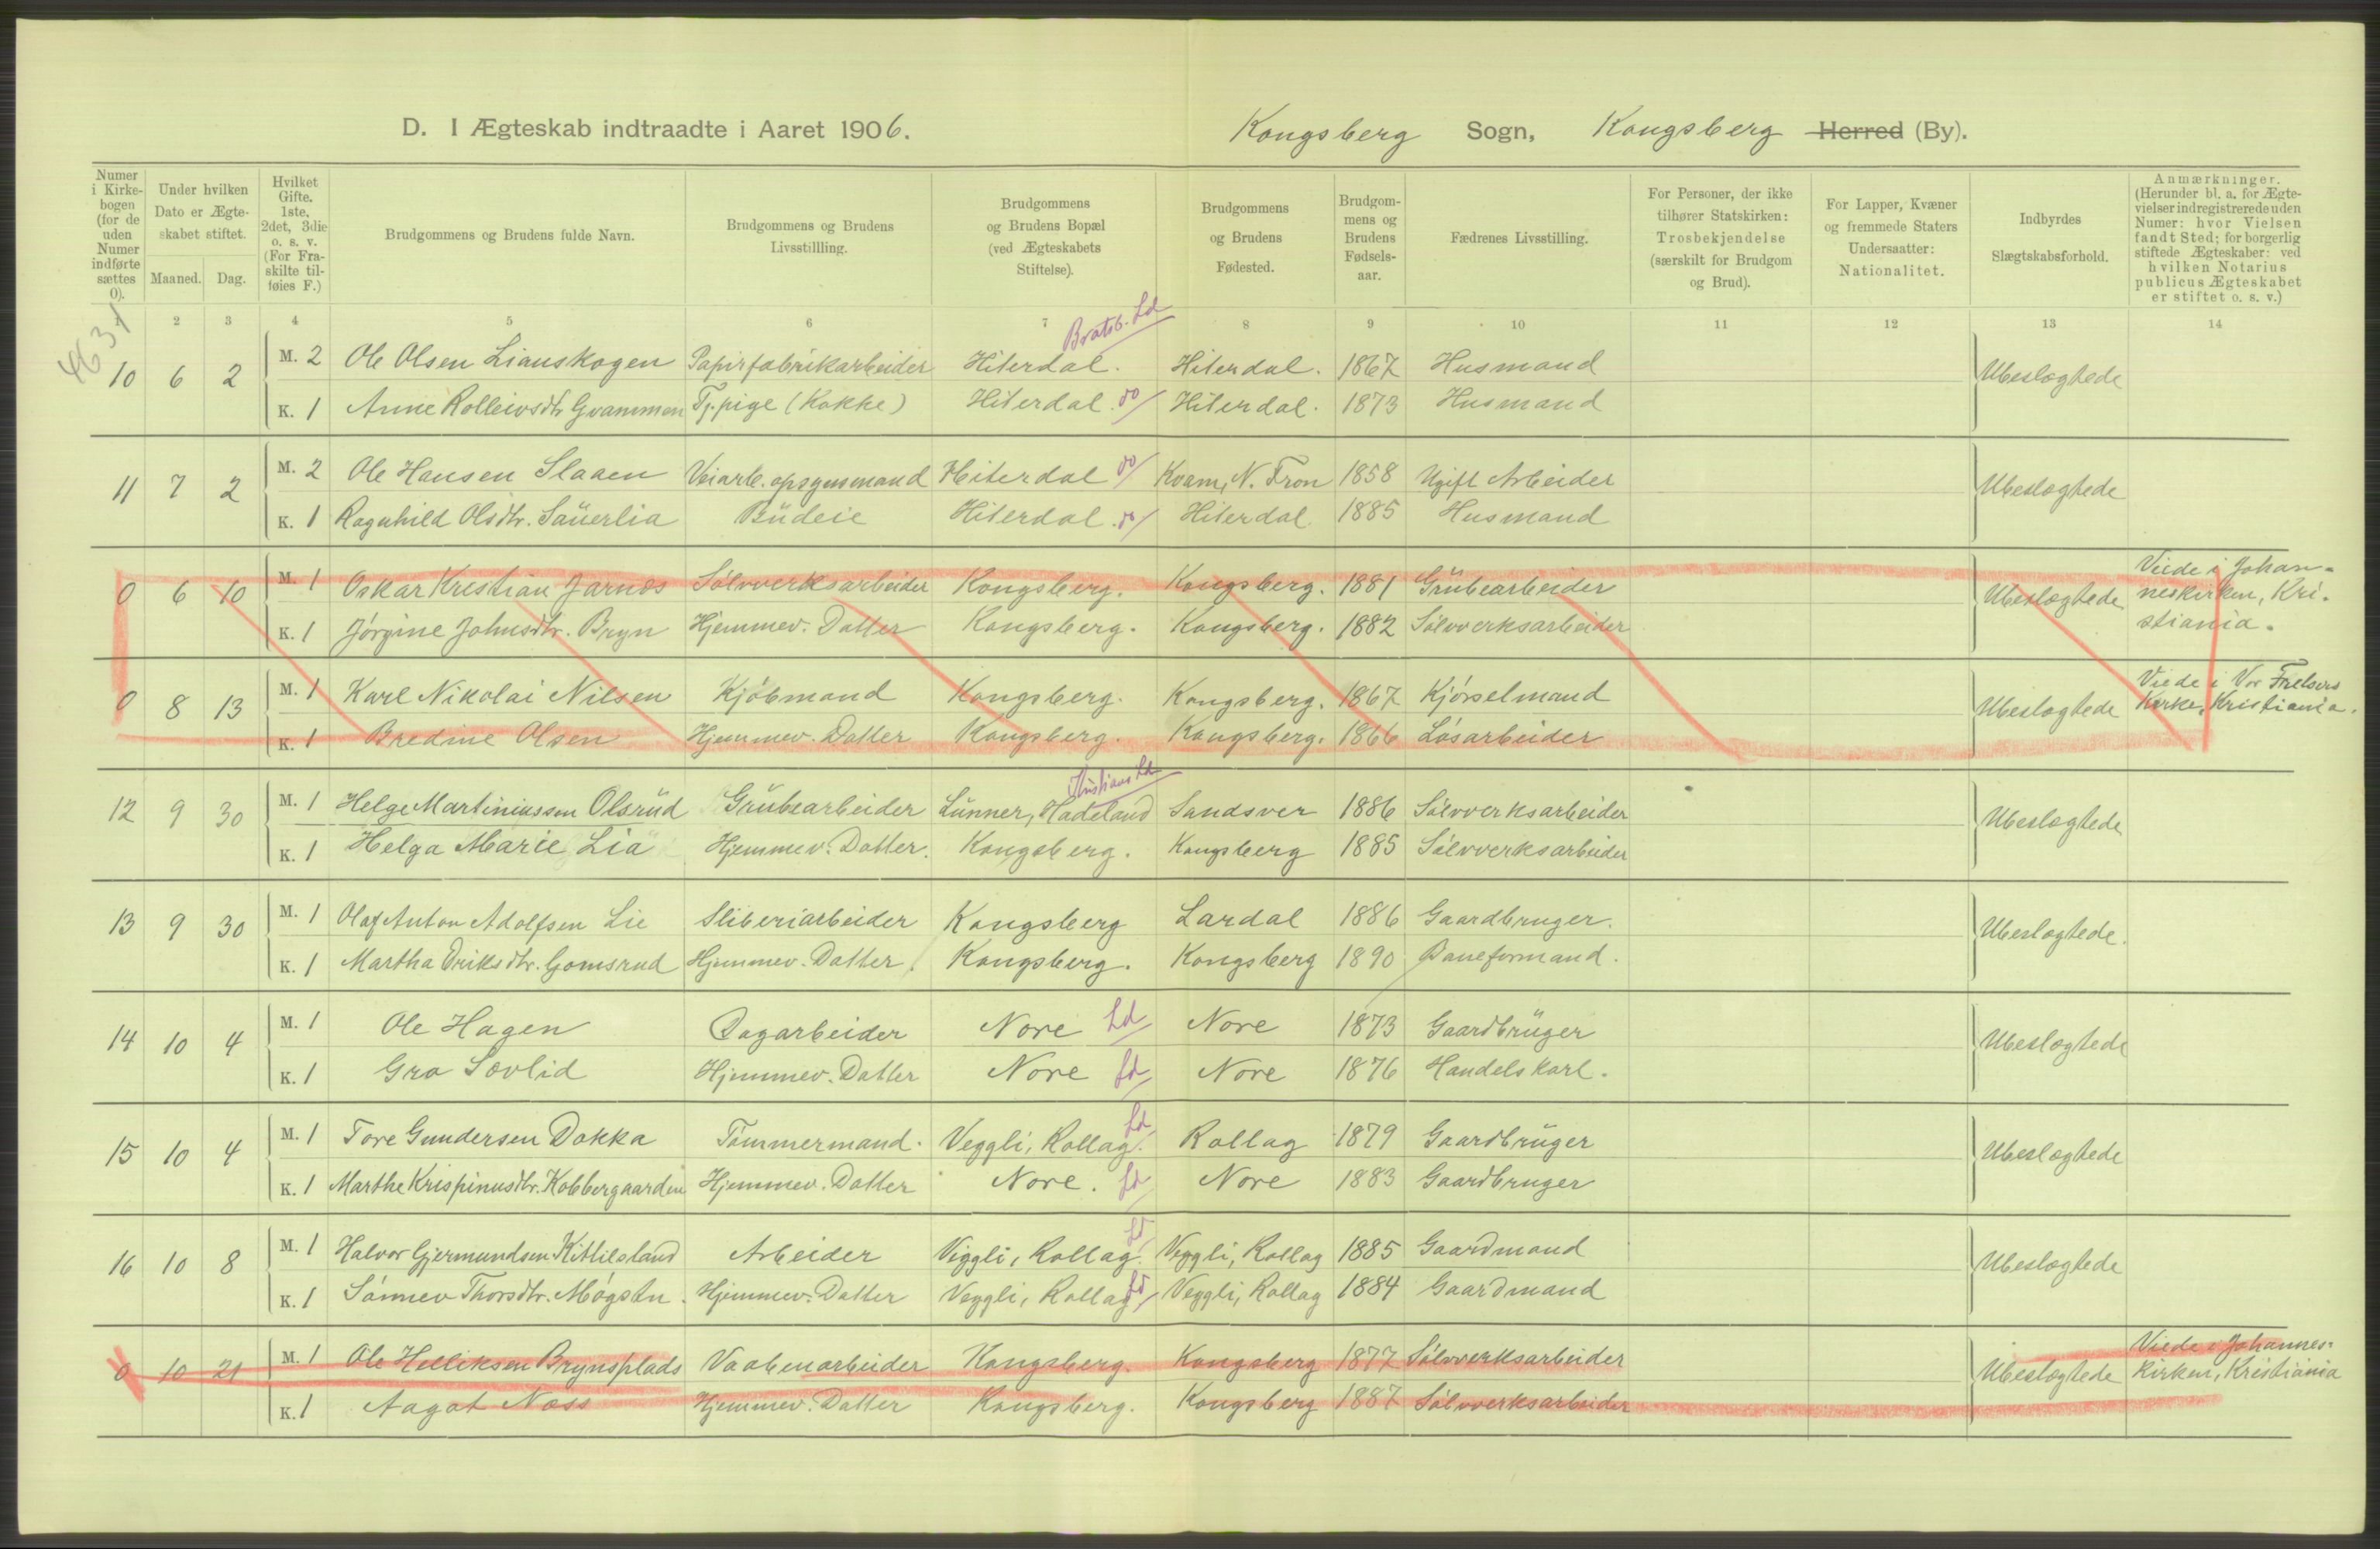 D. I Ægteskab indtraadte i Aaret 1906.
Kongsberg Sogn, Kongsberg Herred (By).
Numer i Kirkebogen (for de uden Numer indførte sættes 0).
Under hvilken Dato er Ægteskabet stiftet.
Maaned. Dag.
Hvilket Gifte. 1ste, 2det, 3die o. s. v. (For Fraskilte tilføies F.)
Brudgommens og Brudens fulde Navn.
Brudgommens og Brudens Livsstillling.
Brudgommens og Brudens Bopæl (ved Ægteskabets Stiftelse).
Brudgommens og Brudens Fødested.
Brudgommens og Brudens Fødselsaar.
Fædrenes Livsstilling.
For Personer, der ikke tilhører Statskirken: Trosbekjendelse (særskilt for Brudgom og Brud).
For Lapper, Kvæner og fremmede Staters Undersaatter: Nationalitet.
Indbyrdes Slægtskabsforhold.
Anmærkninger. (Herunder bl. a. for Ægtevielser indregistrerede uden Numer: hvor Vielsen fandt Sted; for borgerlig stiftede Ægteskaber: ved hvilken Notarius publicus Ægteskabet er stiftet o. s. v.)
1 2 3 4 5 6 7 8 9 10 11 12 13 14
4631
Bratsb. Ld
10 6 2 M. 2 Ole Olsen Lianskogen Papirfabrikarbeider Hiterdal. Hiterdal. 1867 Husmand Ubeslægtede
K. 1 Anne Rolleivsdtr Gvammen Tj.pige (Kokke) Hiterdal. do Hiterdal. 1873 Husmand
11 7 2 M. 2 Ole Hansen Slaaen Veiarb. opsynsmand Hiterdal do Kvam, N. Fron 1858 Ugift Arbeider Ubeslægtede
K. 1 Ragnhild Olsdtr. Saüerlia Büdeie Hiterdal. do Hiterdal. 1885 Husmand
0 6 10 M. 1 Oskar Kristian Jarnæs Sølvverksarbeider Kongsberg. Kongsberg. 1881 Grübearbeider Ubeslægtede Viede i Johanneskirken, Kristiania.
K. 1 Jørgine Johnsdtr. Bryn Hjemmev. Datter Kongsberg. Kongsberg. 1882 Sølvverksarbeider
0 8 13 M. 1 Karl Nikolai Nilsen Kjøbmand Kongsberg. Kongsberg. 1867 Kjørselmand Ubeslægtede Viede i Vor Frelsers Kirke, Kristiania.
K. 1 Bredine Olsen Hjemmev. Datter Kongsberg. Kongsberg. 1866 Løsarbeider
Kristians Ld
12 9 30 M. 1 Helge Martiniussen Olsrüd Grübearbeider Lünner, Hadeland Sandsver 1886 Sølvverksarbeider Ubeslægtede
K. 1 Helga Marie Lia Hjemmev. Datter. Kongsberg. Kongsberg 1885 Sølvverksarbeider
13 9 30 M. 1 Olaf Anton Adolfsen Lie Sliberiarbeider Kongsberg Lardal 1886 Gaardbruger. Ubeslægtede.
K. 1 Martha Eriksdtr. Gomsrud Hjemmev. Datter. Kongsberg. Kongsberg 1890 Baneformand.
14 10 4 M. 1 Ole Hagen Dagarbeider Nore Ld Nore 1873 Gaardbrüger Ubeslægtede
K. 1 Gro Søvlid Hjemmev. Datter Nore Ld Nore 1876 Handelskarl.
15 10 4 M. 1 Tore Gundersen Dokka Tømmermand. Veggli, Rollag. Ld Rollag 1879 Gaardbrüger Ubeslægtede
K. 1 Marthe Krispinusdtr. Kobbergaarden Hjemmev. Datter Nore. Ld Nore 1883 Gaardbruger
16 10 8 M. 1 Halvor Gjermundsen Kittilsland Arbeider Veggli, Rollag. Ld Veggli, Rollag 1885 Gaardmand Ubeslægtede
K. 1 Sønnev Thorsdtr. Møgstn. Hjemmev. Datter Veggli, Rollag Ld Veggli, Rollag 1884 Gaardmand
0 10 21 M. 1 Ole Helliksen Brynsplads Vaabenarbeider Kongsberg. Kongsberg 1877 Sølvverksarbeider Ubeslægtede Viede i Johanneskirken, Kristiania
K. 1 Aagot Næss Hjemmev. Datter Kongsberg. Kongsberg 1887 Sølvverksarbeider